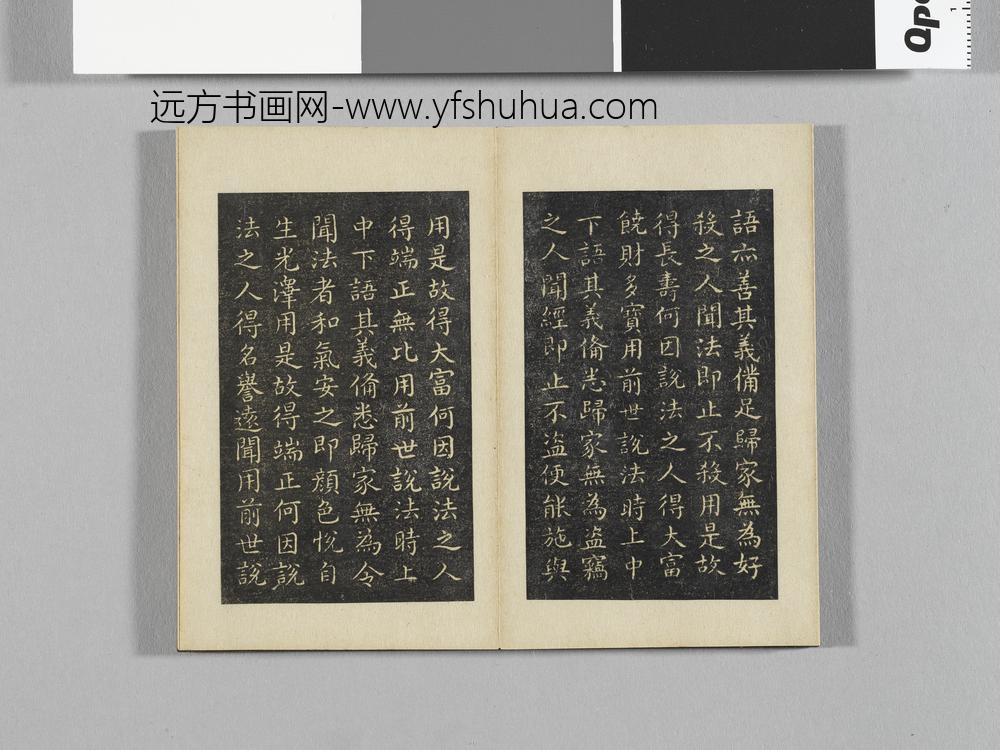 远方书画网-www.yfshuhua.com
語亦善其義備足歸家無為好
殺之人聞法即止不殺用是故
得長壽何因說法之人得大富
饒財多寶用前世說法時上中
下語其義俻悉歸家無為盜竊
之人聞經即止不盜便能施與
用是故得大富何因說法之人
得端正無比用前世說法時上
中下語其義俻悉歸家無為令
聞法者和氣安之即顏色悅自
生光澤用是故得端正何因說
法之人得名譽遠聞用前世說